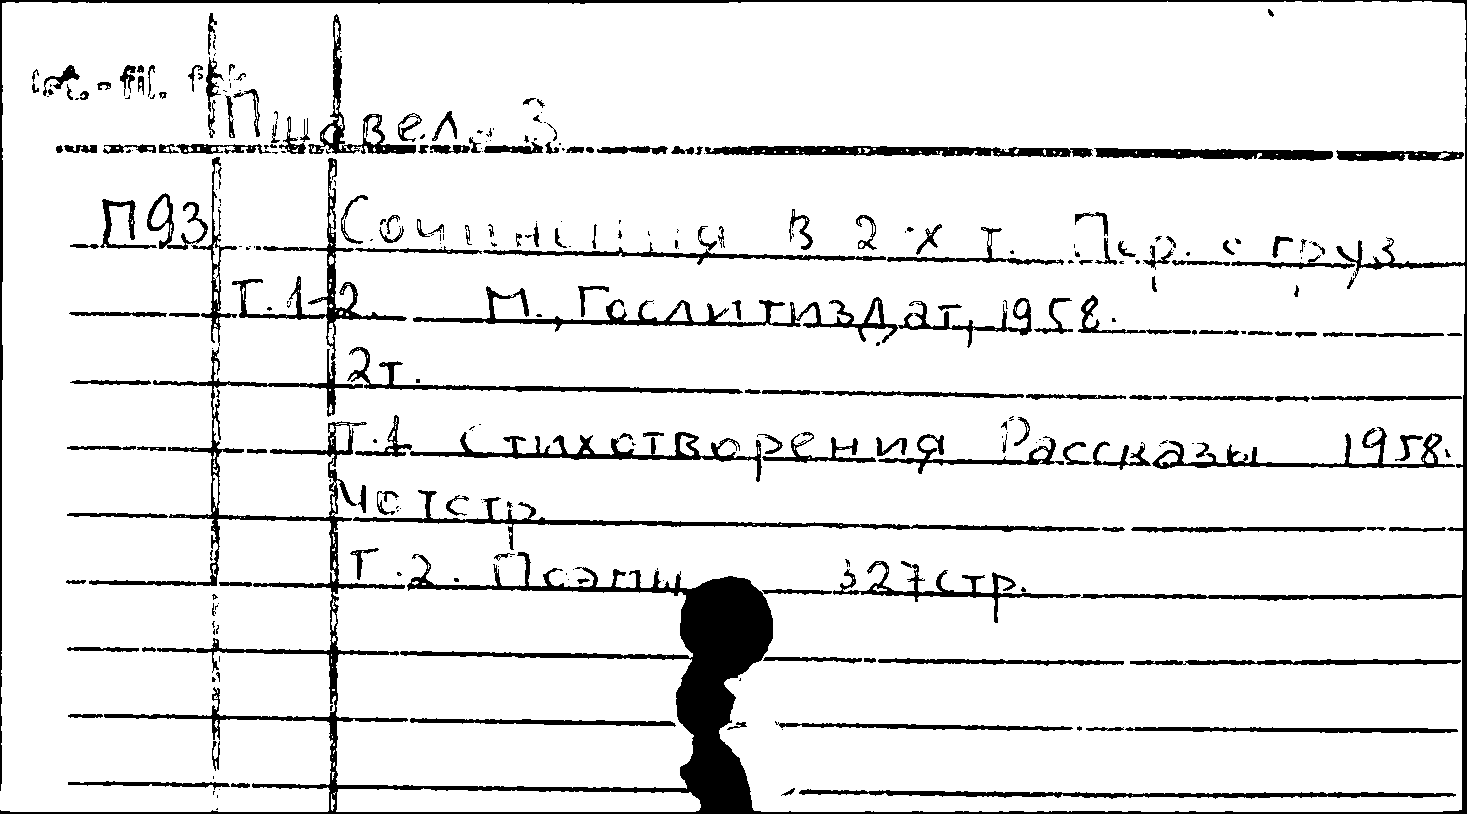 ist.-fil. fak
Пшавел. З
П93 Сочинения в 2-х т. Пер. с груз
Т.1-2. М., Гослитиздат, 1958.
2т.
Т.1 Стихотворения Рассказы 1958.
стр.
Т.2. Поэмы 327стр.